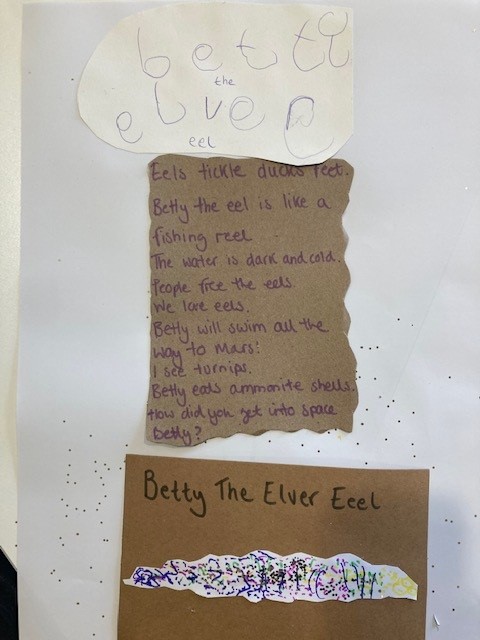 betty
the
elver
eel
Eels tickle ducks feet.
Betty the eel is like a
fishing reel
The water is dark and cold.
People free the eels.
We love eels.
Betty will swim all the
way to Mars.
I see turnips.
Betty eats ammonite shells.
How did you get into space
Betty?
Betty The Elver Eeel